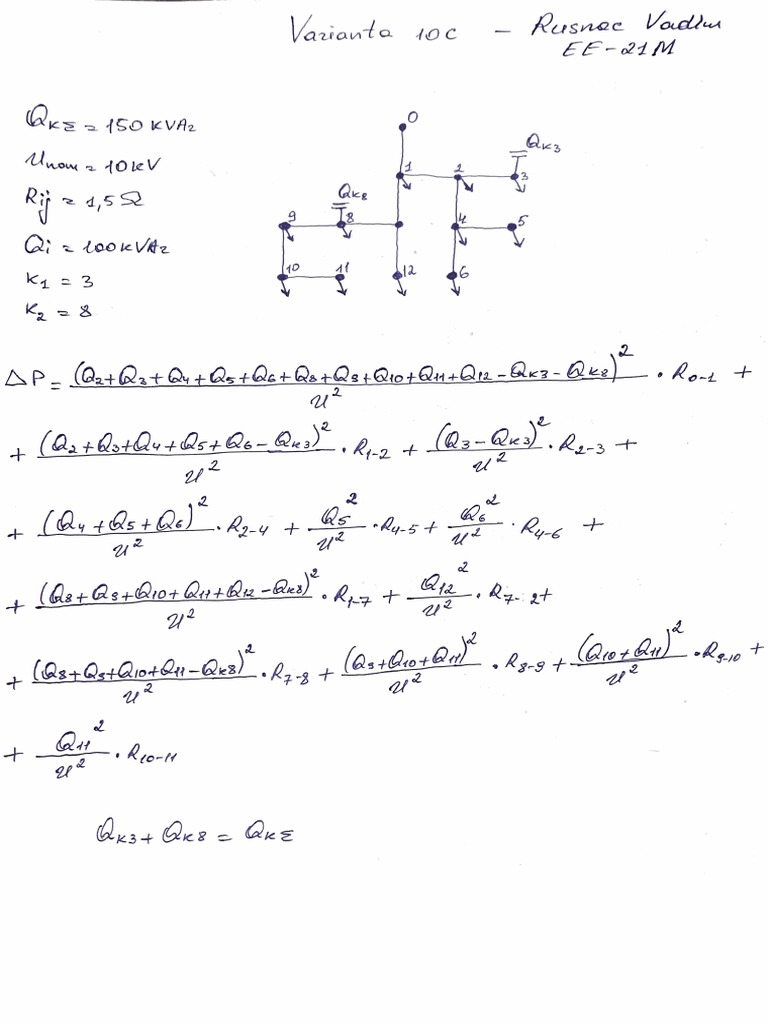 Varianta 10C – Rusnac Vadim
EE-21M
QKΣ = 150 KVAr
Unom = 10kV
Rij = 1,5 Ω
Qi = 100 KVAr
K1 = 3
K2 = 8
0
1 2 3 QK3
9 QK8 8 4 5
10 11 12 6
ΔP = (Q2+Q3+Q4+Q5+Q6+Q8+Q9+Q10+Q11+Q12-QK3-QK8)²/U² · R0-1 +
+ (Q2+Q3+Q4+Q5+Q6-QK3)²/U² · R1-2 + (Q3-QK3)²/U² · R2-3 +
+ (Q4+Q5+Q6)²/U² · R2-4 + Q5²/U² · R4-5 + Q6²/U² · R4-6 +
+ (Q8+Q9+Q10+Q11+Q12-QK8)²/U² · R1-7 + Q12²/U² · R7-12+
+ (Q8+Q9+Q10+Q11-QK8)²/U² · R7-8 + (Q9+Q10+Q11)²/U² · R8-9 + (Q10+Q11)²/U² · R9-10 +
+ Q11²/U² · R10-11
QK3 + QK8 = QKΣ